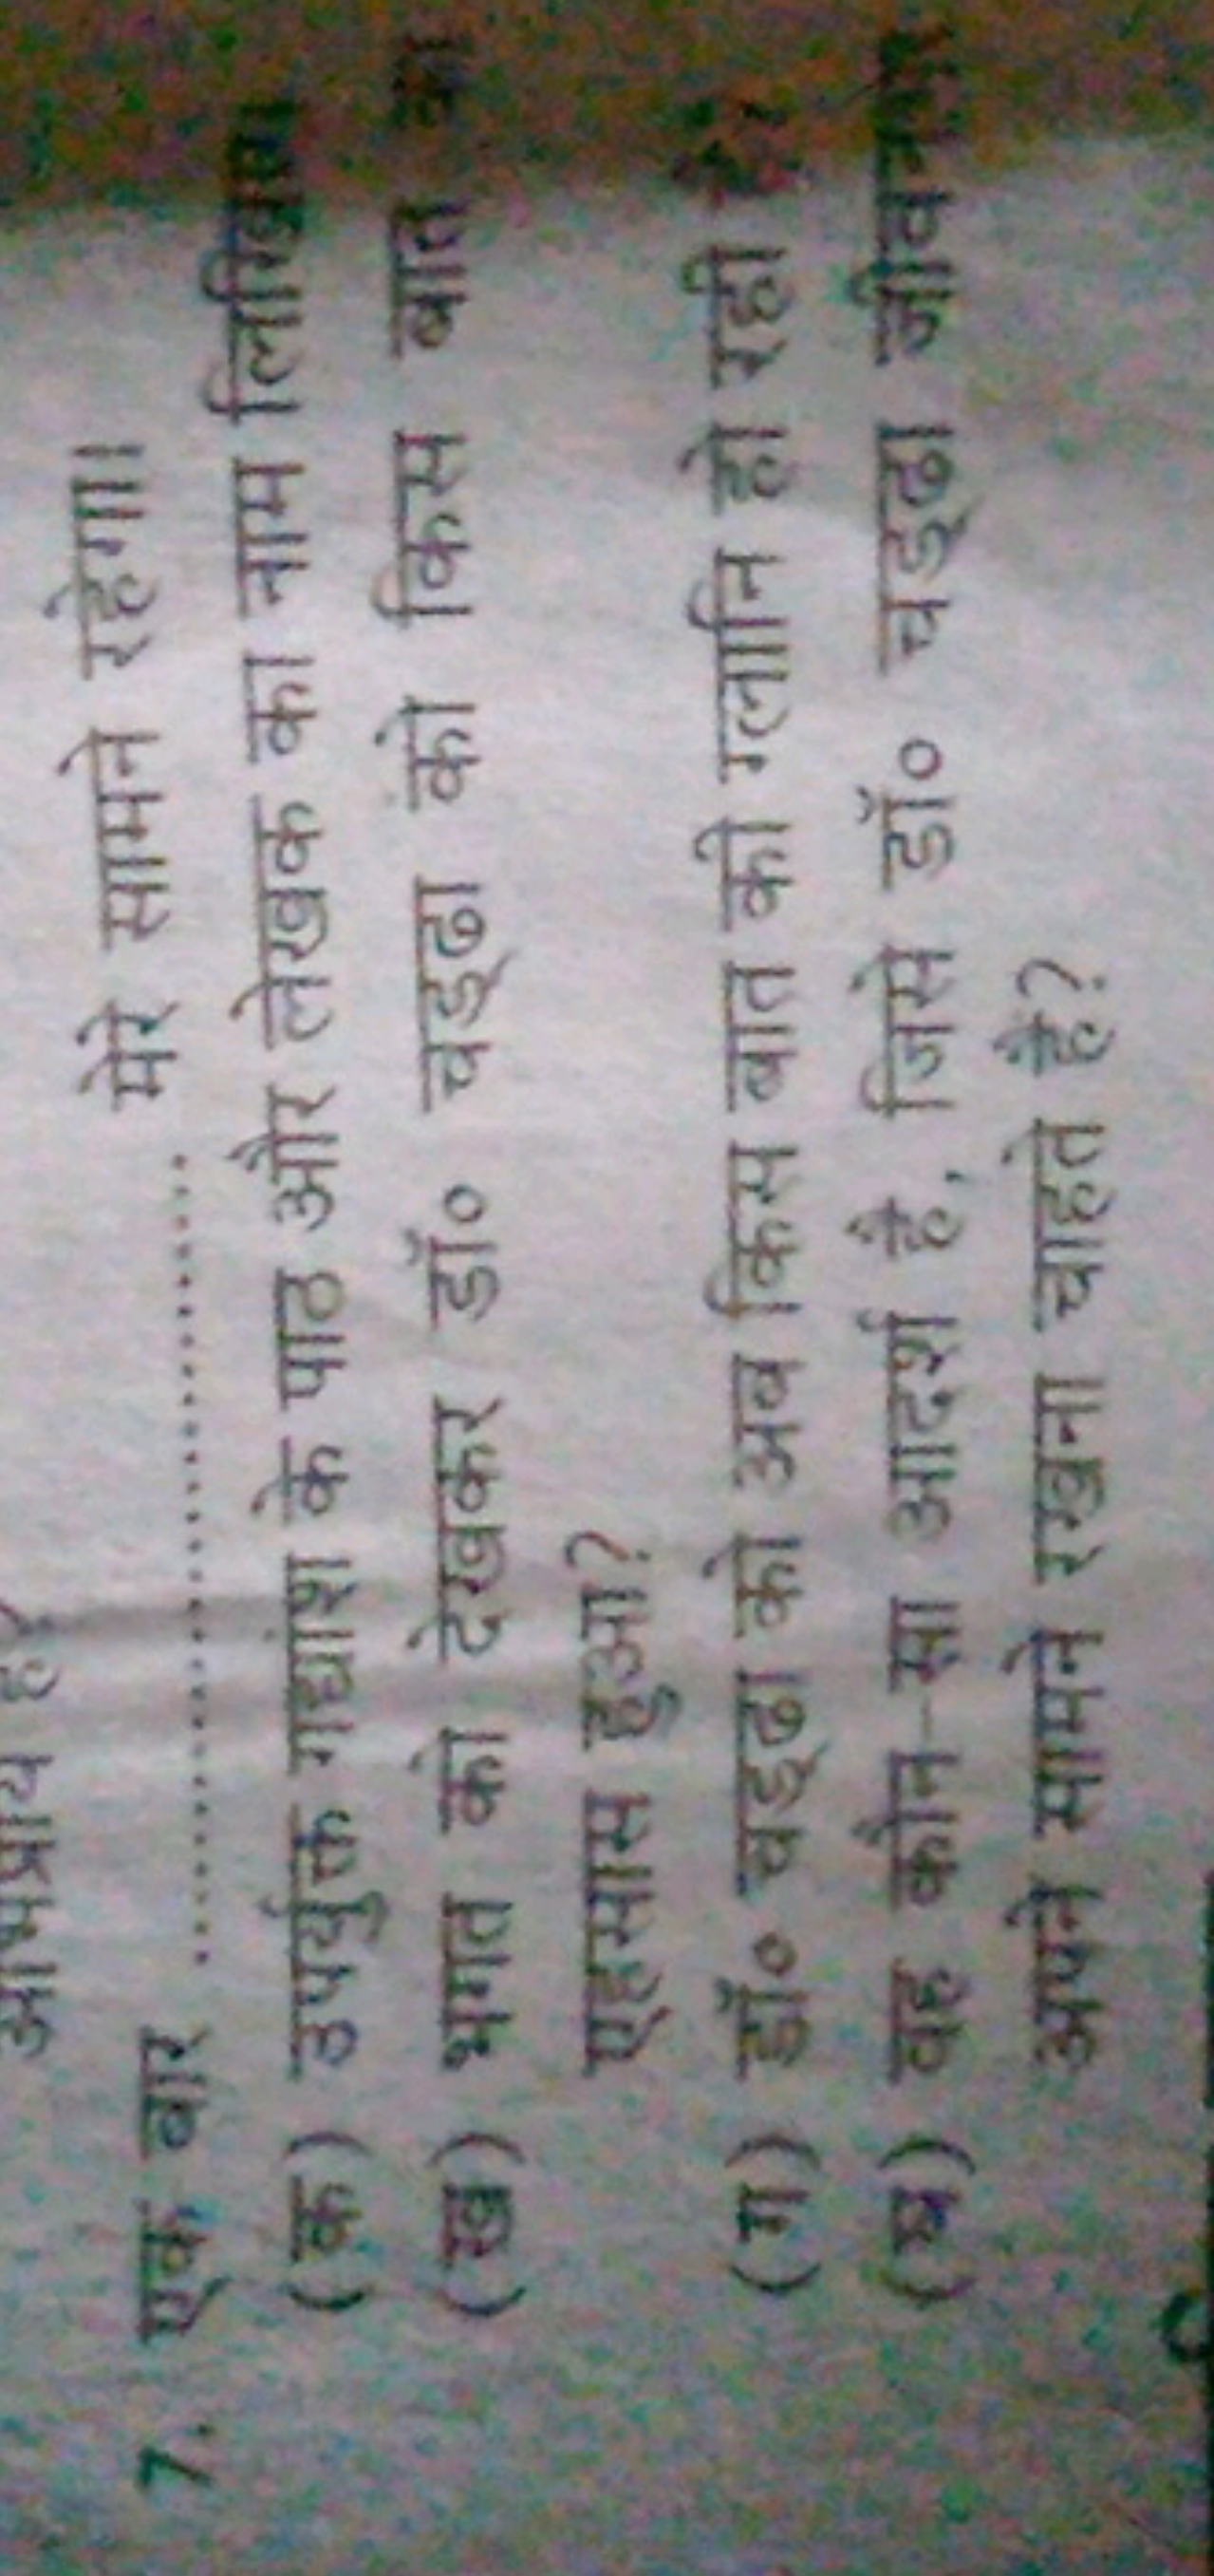 अभिप्राय है?
7. एक बार ........................ मेरे सामने रहेगा।
(क) उपर्युक्त गद्यांश के पाठ और लेखक का नाम लिखिए।
(ख) भगत को देखकर डॉ० चड्ढा को किस बात का
एहसास हुआ?
(ग) डॉ० चड्ढा को अब किस बात की ग्लानि हो रही है?
(घ) वह कौन-सा आदर्श है, जिसे डॉ० चड्ढा जीवनभर
अपने सामने रखना चाहते हैं?